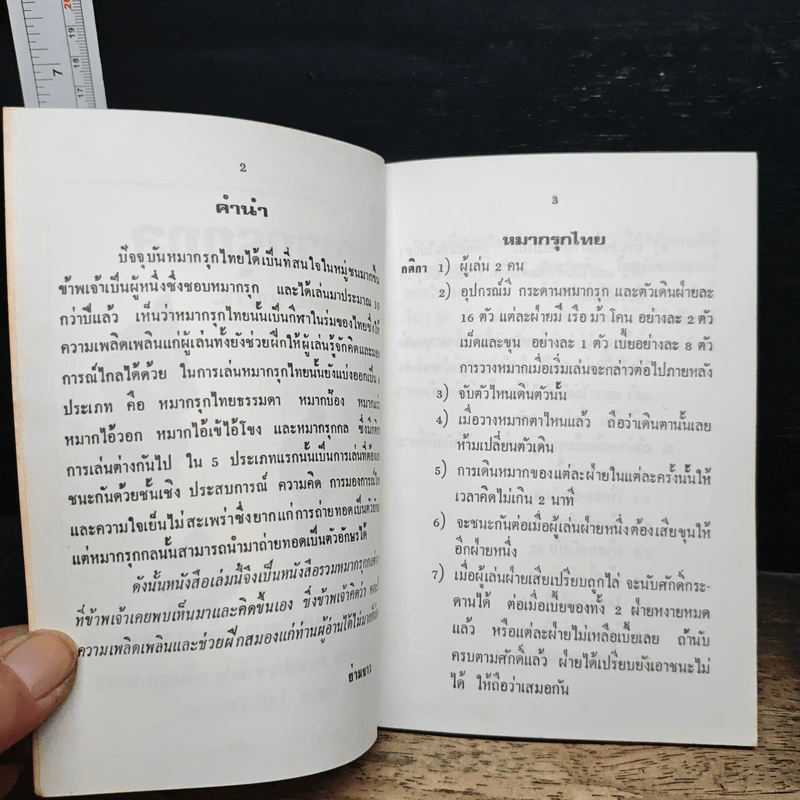 7
20
19
18
17
2
คำนำ
ปัจจุบันหมากรุกไทยได้เป็นที่สนใจในหมู่ชนมากขึ้น
ข้าพเจ้าเป็นผู้หนึ่งซึ่งชอบหมากรุก และได้เล่นมาประมาณ 10
กว่าปีแล้ว เห็นว่าหมากรุกไทยนั้นเป็นกีฬาในร่มของไทยซึ่งให้
ความเพลิดเพลินแก่ผู้เล่นทั้งยังช่วยฝึกให้ผู้เล่นรู้จักคิดและมอง
การณ์ไกลได้ด้วย ในการเล่นหมากรุกไทยนั้นยังแบ่งออกเป็น
ประเภท คือ หมากรุกไทยธรรมดา หมากบ๊อง
หมากไอ้วอก หมากไอ้เข้ไอ้โขง และหมากรุกกล ซึ่งมีกติกา
การเล่นต่างกันไป ใน 5 ประเภทแรกนั้นเป็นการเล่นที่ต้อง
ชนะกันด้วยชั้นเชิง ประสบการณ์ ความคิด การมองการณ์ไกล
และความใจเย็นไม่สะเพร่าซึ่งยากแก่การถ่ายทอดเป็นตัวอักษร
แต่หมากรุกกลนั้นสามารถนำมาถ่ายทอดเป็นตัวอักษรได้
ดังนั้นหนังสือเล่มนี้จึงเป็นหนังสือรวมหมากรุกกล
ที่ข้าพเจ้าเคยพบเห็นมาและคิดขึ้นเอง ซึ่งข้าพเจ้าคิดว่า
ความเพลิดเพลินและช่วยฝึกสมองแก่ท่านผู้อ่านได้ไม่มากก็น้อย
อ่ามขาว
3
หมากรุกไทย
กติกา 1) ผู้เล่น 2 คน
2) อุปกรณ์มี กระดานหมากรุก และตัวเดินฝ่ายละ
16 ตัว แต่ละฝ่ายมี เรือ ม้า โคน อย่างละ 2 ตัว
เม็ดและขุน อย่างละ 1 ตัว เบี้ยอย่างละ 8 ตัว
การวางหมากเมื่อเริ่มเล่นจะกล่าวต่อไปภายหลัง
3) จับตัวไหนเดินตัวนั้น
4) เมื่อวางหมากตาไหนแล้ว ถือว่าเดินตานั้นเลย
ห้ามเปลี่ยนตัวเดิน
5) การเดินหมากของแต่ละฝ่ายในแต่ละครั้งนั้นให้
เวลาคิดไม่เกิน 2 นาที
6) จะชนะกันต่อเมื่อผู้เล่นฝ่ายหนึ่งต้องเสียขุนให้
อีกฝ่ายหนึ่ง
7) เมื่อผู้เล่นฝ่ายเสียเปรียบถูกไล่ จะนับศักดิ์กระ-
ดานได้ ต่อเมื่อเบี้ยของทั้ง 2 ฝ่ายหงายหมด
แล้ว หรือแต่ละฝ่ายไม่เหลือเบี้ยเลย ถ้านับ
ครบตามศักดิ์แล้ว ฝ่ายได้เปรียบยังเอาชนะไม่
ได้ ให้ถือว่าเสมอกัน